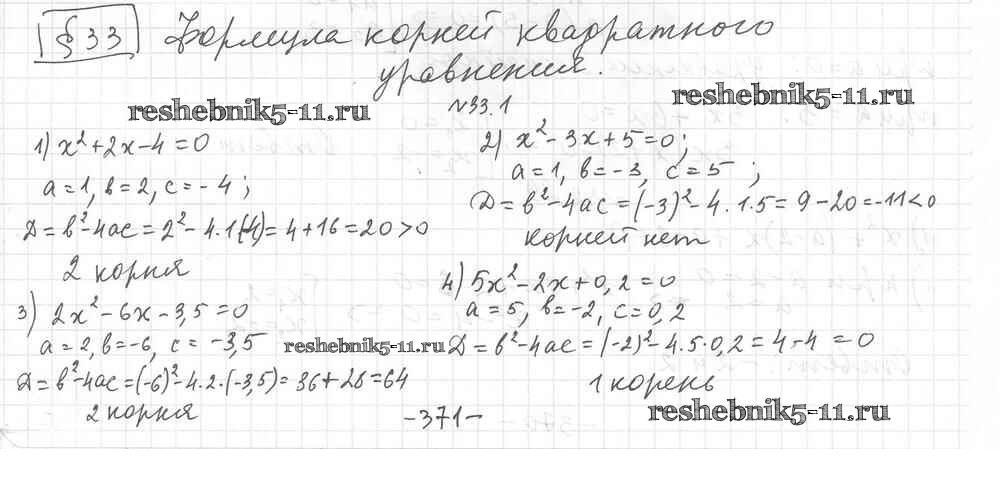 § 33 Формула корней квадратного
уравнения.
reshebnik5-11.ru
№33.1
reshebnik5-11.ru
1) x²+2x-4=0
a=1, b=2, c=-4;
D=b²-4ac=2²-4·1(-4)=4+16=20>0
2 корня
2) x²-3x+5=0;
a=1, b=-3, c=5;
D=b²-4ac=(-3)²-4·1·5=9-20=-11<0
корней нет
3) 2x²-6x-3,5=0
a=2, b=-6, c=-3,5
D=b²-4ac=(-6)²-4·2·(-3,5)=36+28=64
2 корня
4) 5x²-2x+0,2=0
a=5, b=-2, c=0,2
reshebnik5-11.ru
D=b²-4ac=(-2)²-4·5·0,2=4-4=0
1 корень
-371-
reshebnik5-11.ru